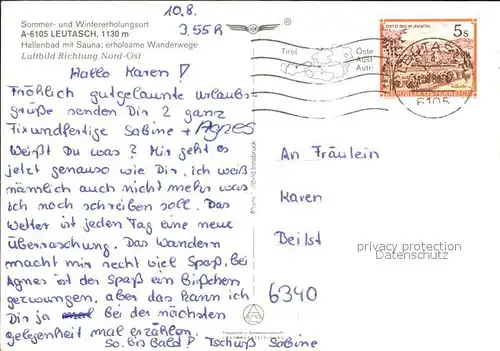 10.8.
3,55R
Sommer- und Wintererholungsort
A-6105 LEUTASCH, 1130 m
Hallenbad mit Sauna: erholsame Wanderwege
Luftbild Richtung Nord-Ost
Hallo Karen!
Fröhlich gutgelaunte Urlaubs-
grüße senden Dir 2 ganz
Fixundfertige Sabine + Agnes
Weißt Du was? Mir geht es
jetzt genauso wie Dir, ich weiß
nämlich auch nicht mehr was
ich noch schreiben soll. Das
Wetter ist jeden Tag eine neue
Überraschung. Das Wandern
macht mir recht viel Spaß, bei
Agnes ist der Spaß ein Bißchen
gezwungen, aber das kann ich
Dir ja bei der nächsten
gelegenheit mal erzählen.
So. bis Bald! Tschüß Sabine
Tirol
Öste
Aust
Autri
STIFT ST. PAUL IM LAVANTTAL
5s
REPUBLIK ÖSTERREICH
LEUTASCH
6105
An Fräulein
Karen
Beilst
6340
privacy protection
Datenschutz